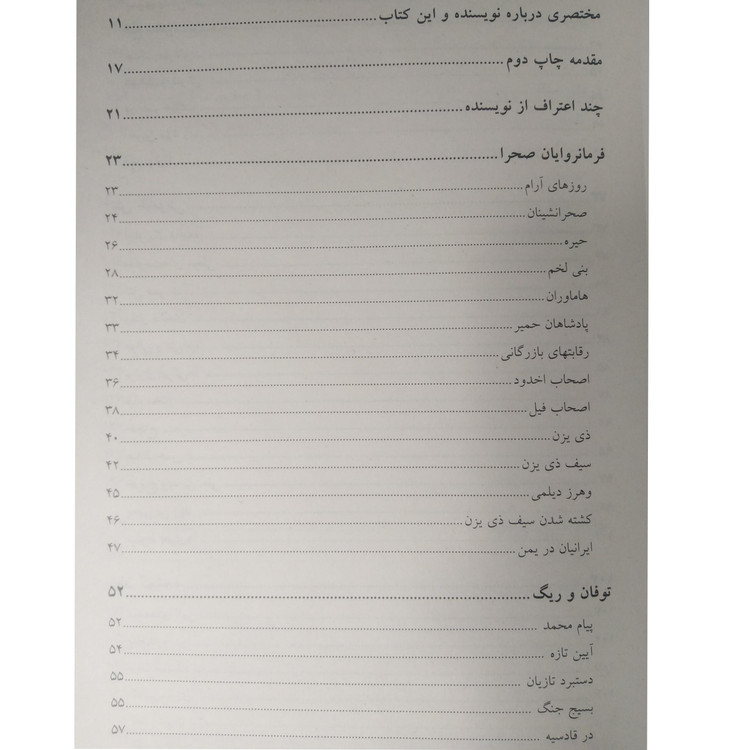 مختصری درباره نویسنده و این کتاب ۱۱
مقدمه چاپ دوم ۱۷
چند اعتراف از نویسنده ۲۱
فرمانروایان صحرا ۲۳
روزهای آرام ۲۳
صحرانشینان ۲۴
حیره ۲۶
بنی لخم ۲۸
هاماوران ۳۲
پادشاهان حمیر ۳۳
رقابتهای بازرگانی ۳۴
اصحاب اخدود ۳۶
اصحاب فیل ۳۸
ذی یزن ۴۰
سیف ذی یزن ۴۲
وهرز دیلمی ۴۵
کشته شدن سیف ذی یزن ۴۶
ایرانیان در یمن ۴۷
توفان و ریگ ۵۲
پیام محمد ۵۲
آیین تازه ۵۴
دستبرد تازیان ۵۵
بسیج جنگ ۵۵
در قادسیه ۵۷